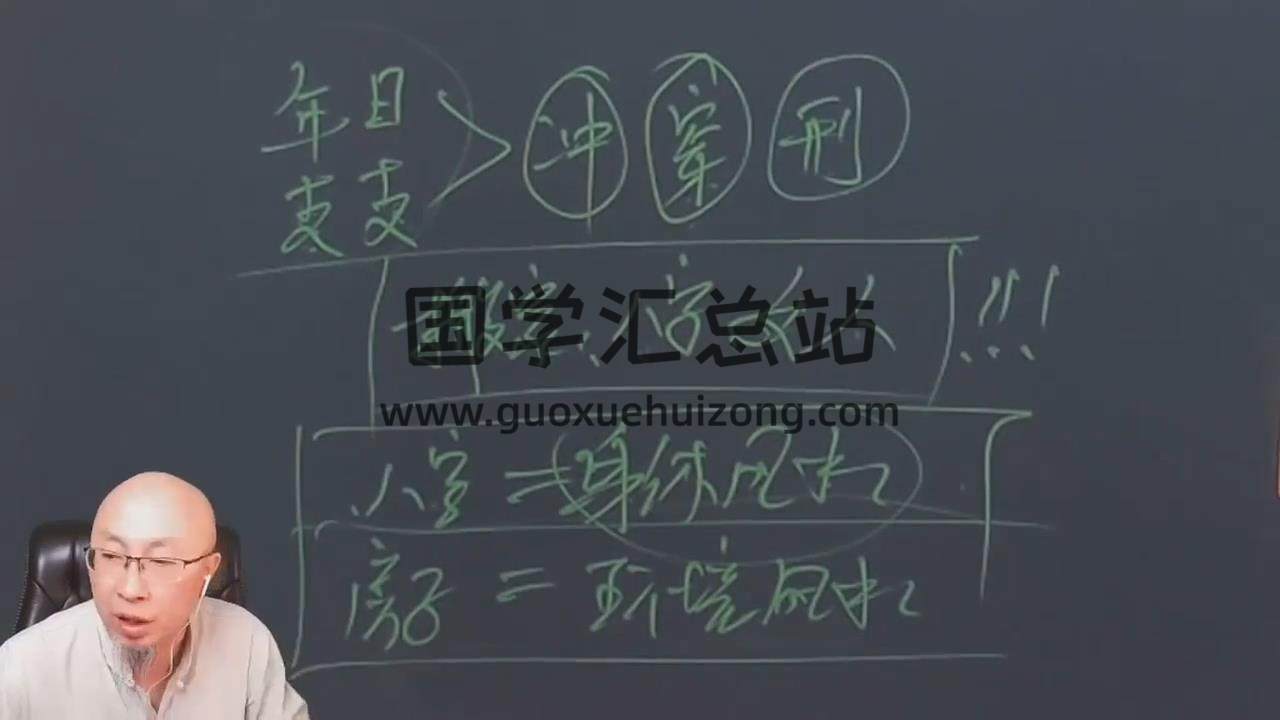 年日
支支 > 冲 穿 刑
搬家 八字 人 !!!
国学汇总站
www.guoxuehuizong.com
八字 = 身体风水
房子 = 环境风水